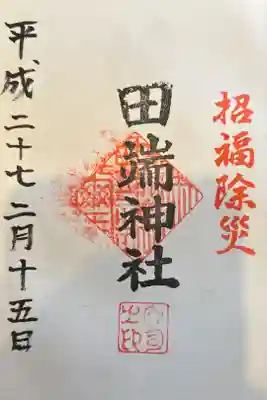 招福除災
田端神社
宮司之印
平成二十七二月十五日